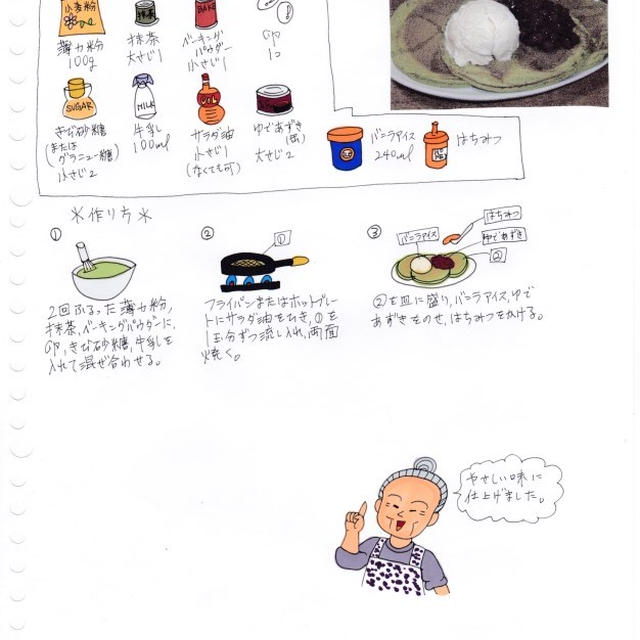 小麦粉
抹茶
BAKE
薄力粉
100g
抹茶
大さじ1
ベーキング
パウダー
小さじ1
卵
1コ
SUGAR
MILK
OIL
きび砂糖
(または
グラニュー糖)
小さじ2
牛乳
100ml
サラダ油
小さじ1
(なくても可)
ゆであずき
(缶)
大さじ2
バニラアイス
240ml
はちみつ
*作り方*
①
②
①
③
はちみつ
バニラアイス
ゆであずき
②
2回ふるった薄力粉,
抹茶,ベーキングパウダーに,
卵,きび砂糖,牛乳を
入れて混ぜ合わせる。
フライパンまたはホットプレー
トにサラダ油をひき,①を
1玉分ずつ流し入れ,両面
焼く。
②を皿に盛り,バニラアイス,ゆで
あずきをのせ,はちみつをかける。
やさしい味に
仕上げました。